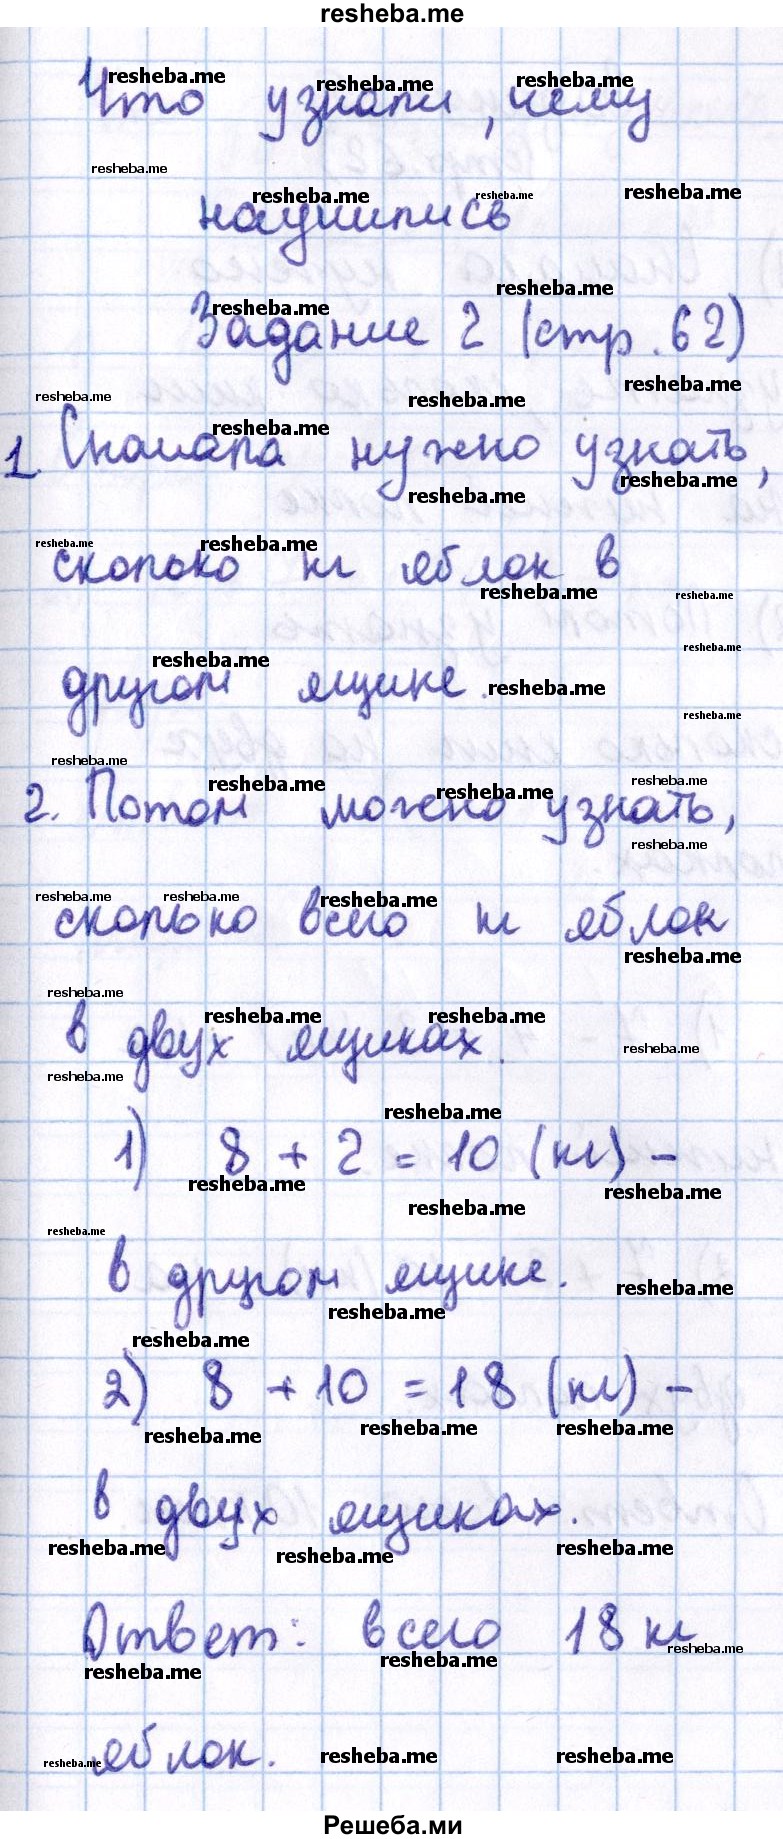 resheba.me
Что узнали, чему
научились
Задание 2 (стр. 62)
1. Сначала нужно узнать,
сколько кг яблок в
другом ящике.
2. Потом можно узнать,
сколько всего кг яблок
в двух ящиках.
1) 8 + 2 = 10 (кг) -
в другом ящике.
2) 8 + 10 = 18 (кг) -
в двух ящиках.
Ответ: всего 18 кг
яблок.
Решеба.ми